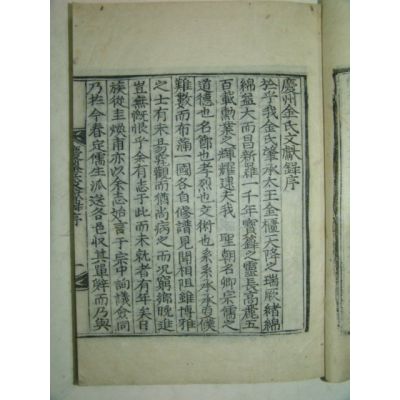 慶州金氏文獻錄序
於乎我金氏肇承太王金櫃天降之瑞厥緖綿
綿益大而昌新羅一千年寶籙之靈長高麗五
百載勳業之輝耀逮夫我 聖朝名卿宗儒之
道德也名節也孝烈也文術也系系承承更僕
難數而布滿一國各自修譜見聞相阻雖博雅
之士有未易悉觀而猶尚病之而况窮鄕晩進
豈無慨恨乎余有志于此而未就者有年矣日
族從圭煥甫亦以余志始言于宗中詢議僉同
乃於今春定儒生派送各邑收其單牒而乃與